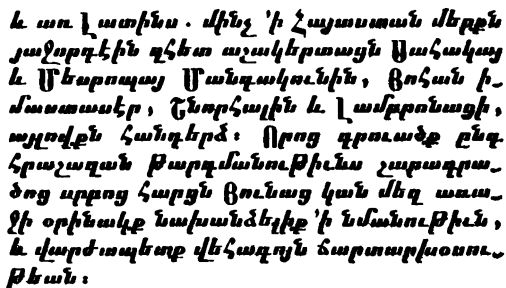 և առ Լատինս. մինչ 'ի Հայաստան մերքն
յաջորդէին զհետ աշակերտացն Սահակայ
և Մեսրոպայ Մանդակունին, Յոհան ի֊
մաստասէր, Շնորհալին և Լամբրոնացի,
այլովքն հանդերձ։ Որոց գրուածք ընդ
հրաշազան թարգմանութիւնս շարադրա֊
ծոց սրբոց հարցն Յունաց կան մեզ առա֊
ջի օրինակք նախանձելիք 'ի նմանութիւն,
և վարժապետք վեհագոյն ճարտարխօսու֊
թեան։